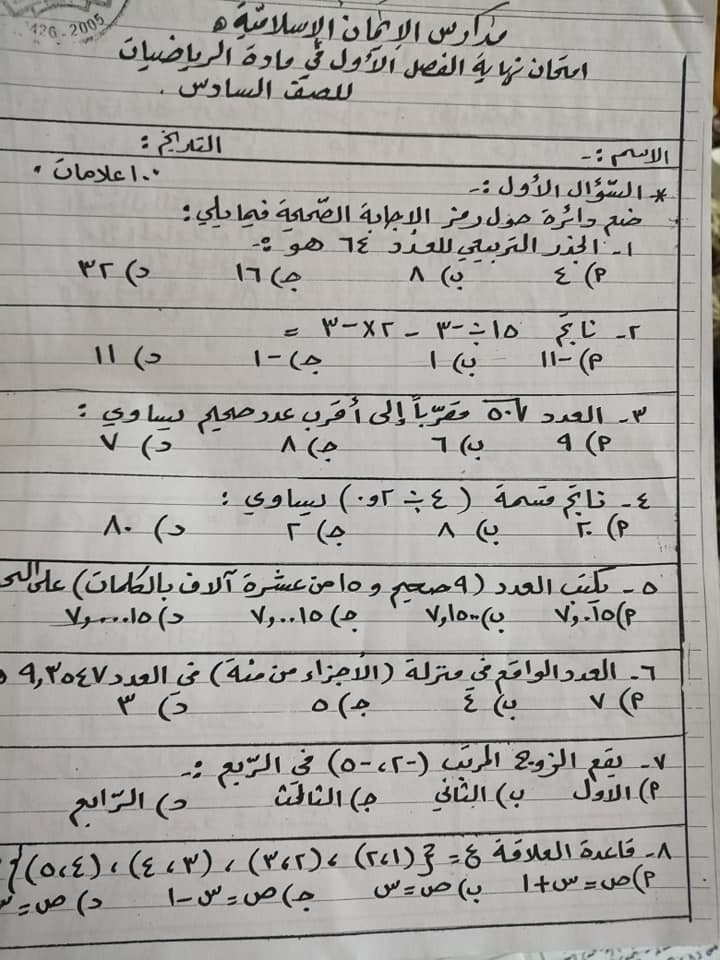 426.2005
مدارس الإيمان الإسلامية
امتحان نهاية الفصل الأول في مادة الرياضيات
للصف السادس .
الاسم :- التاريخ :
* السؤال الأول :- ١٠ علامات .
ضع دائرة حول رمز الإجابة الصحيحة فيما يلي :
١- الجذر التربيعي للعدد ٦٤ هو :-
أ) ٤ ب) ٨ ج) ١٦ د) ٣٢
٢- ناتج ١٥ ÷ -٣ - ٢ × -٣ =
أ) -١١ ب) ١ ج) -١ د) ١١
٣- العدد مقرباً إلى أقرب عدد صحيح يساوي :
أ) ٩ ب) ٦ ج) ٨ د) ٧
٤- ناتج قسمة ( ٤ ÷ ٢و٠ ) يساوي :
أ) ٢٠ ب) ٨ ج) ٢ د) ٨٠
٥- يكتب العدد (٩ صحيح و ١٥ من عشرة آلاف بالكلمات) على
أ) ٧,٠١٥ ب) ٧,١٥٠٠ ج) ٧,٠٠١٥ د) ٧,٠٠٠٠١٥
٦- العدد الواقع في منزلة (الأجزاء من مئة) في العدد ٩,٣٥٤٧
أ) ٧ ب) ٤ ج) ٥ د) ٣
٧- يقع الزوج المرتب (-٢ ، -٥) في الربع :-
أ) الأول ب) الثاني ج) الثالث د) الرابع
٨- قاعدة العلاقة ع = { (١،٢) ، (٢،٣) ، (٣،٤) ، (٤،٥) }
أ) ص = س + ١ ب) ص = س ج) ص = س - ١ د) ص =